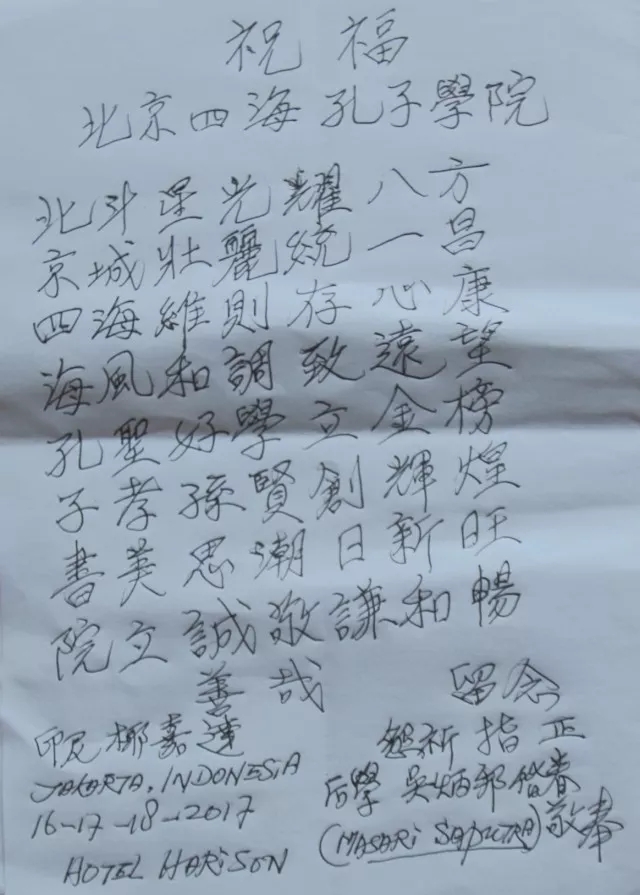 祝福
北京四海孔子學院
北斗星光耀八方
京城壯麗統一昌
四海維則存心康
海風和調致遠望
孔聖好學立金榜
子孝孫賢創輝煌
書美思潮日新旺
院立誠敬謙和暢
善哉 留念
印尼椰嘉達 懇祈指正
JAKARTA, INDONESIA 后學 吳炳邦偕眷
16-17-18-2017 (MASARI SAPUTRA) 敬奉
HOTEL HARISON